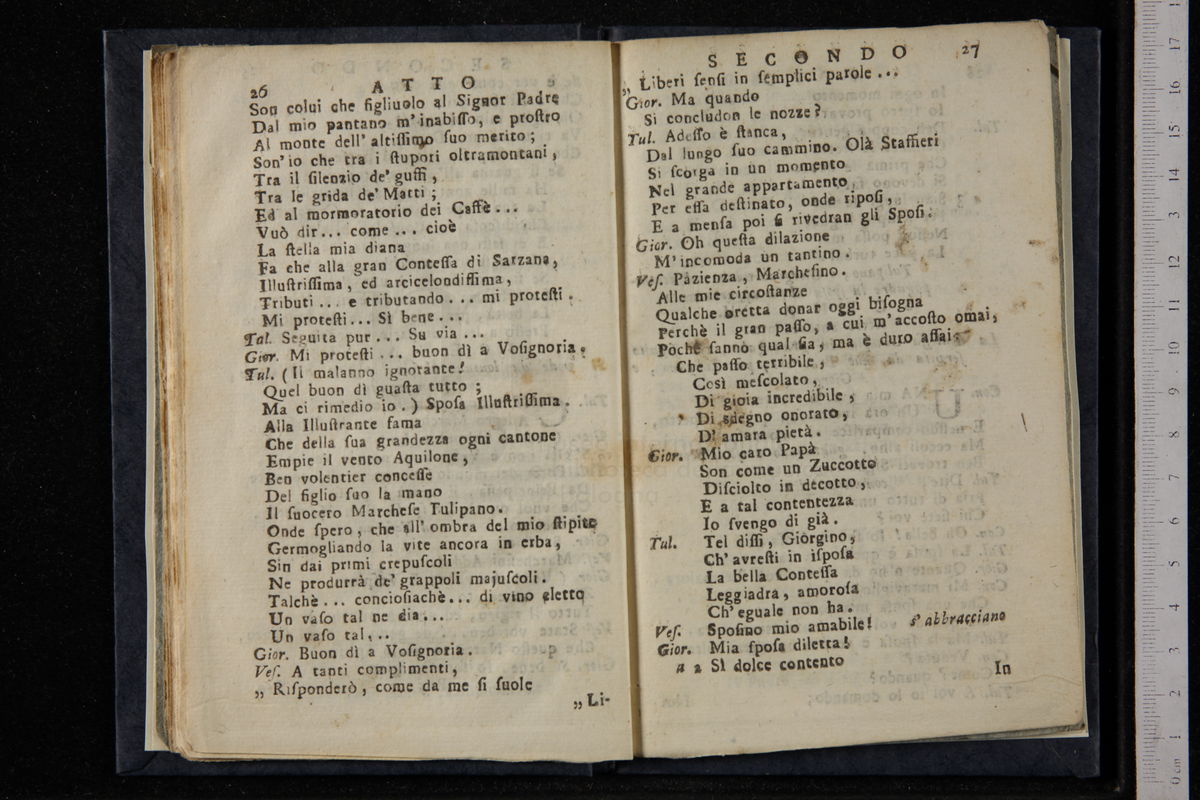 26 ATTO
Son colui che figliuolo al Signor Padre
Dal mio pantano m'inabiſſo, e proſtro
Al monte dell' altiſſimo ſuo merito;
Son' io che tra i ſtupori oltramontani,
Tra il ſilenzio de' guffi,
Tra le grida de' Matti;
Ed al mormoratorio dei Caffè...
Vuò dir... come... cioè
La ſtella mia diana
Fa che alla gran Conteſſa di Sarzana,
Illuſtriſſima, ed arcicelondiſſima,
Tributi... e tributando... mi proteſti.
Mi proteſti... Sì bene...
Tul. Seguita pur... Su via...
Gior. Mi proteſti... buon dì a Voſignoria.
Tul. (Il malanno ignorante!
Quel buon dì guaſta tutto;
Ma ci rimedio io.) Spoſa Illuſtriſſima.
Alla Illuſtrante fama
Che della ſua grandezza ogni cantone
Empie il vento Aquilone,
Ben volentier conceſſe
Del figlio ſuo la mano
Il ſuocero Marcheſe Tulipano.
Onde ſpero, che all' ombra del mio ſtipite
Germogliando la vite ancora in erba,
Sin dai primi crepuſcoli
Ne produrrà de' grappoli majuſcoli.
Talchè... concioſiachè... di vino eletto
Un vaſo tal ne dia...
Un vaſo tal,..
Gior. Buon dì a Voſignoria.
Veſ. A tanti complimenti,
„ Riſponderò, come da me ſi ſuole
„ Li-
SECONDO 27
„ Liberi ſenſi in ſemplici parole...
Gior. Ma quando
Si concludon le nozze?
Tul. Adeſſo è ſtanca,
Dal lungo ſuo cammino. Olà Staffieri
Si ſcorga in un momento
Nel grande appartamento
Per eſſa deſtinato, onde ripoſi,
E a menſa poi ſi rivedran gli Spoſi.
Gior. Oh queſta dilazione
M'incomoda un tantino.
Veſ. Pazienza, Marcheſino.
Alle mie circoſtanze
Qualche oretta donar oggi biſogna
Perchè il gran paſſo, a cui m'accoſto omai,
Poche ſanno qual ſia, ma è duro aſſai.
Che paſſo terribile,
Così meſcolato,
Di gioia incredibile,
Di sdegno onorato,
D' amara pietà.
Gior. Mio caro Papà
Son come un Zuccotto
Diſciolto in decotto,
E a tal contentezza
Io ſvengo di già.
Tul. Tel diſſi, Giorgino,
Ch' avreſti in iſpoſa
La bella Conteſſa
Leggiadra, amoroſa
Ch' eguale non ha.
Veſ. Spoſino mio amabile! s' abbracciano
Gior. Mia ſpoſa diletta!
a 2 Sì dolce contento
In